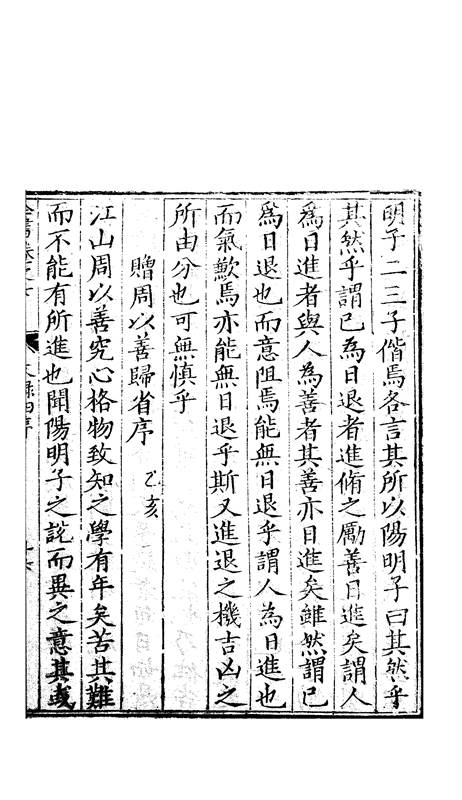 明子二三子偕焉各言其所以陽明子曰其然乎
其然乎謂已為日退者進脩之勵善日進矣謂人
為日進者與人為善者其善亦日進矣雖然謂已
為日退也而意阻焉能無日退乎謂人為日進也
而氣歉焉亦能無日退乎斯又進退之機吉凶之
所由分也可無慎乎
贈周以善歸省序 乙亥
江山周以善究心格物致知之學有年矣苦其難
而不能有所進也聞陽明子之說而異之意其或
文錄四序